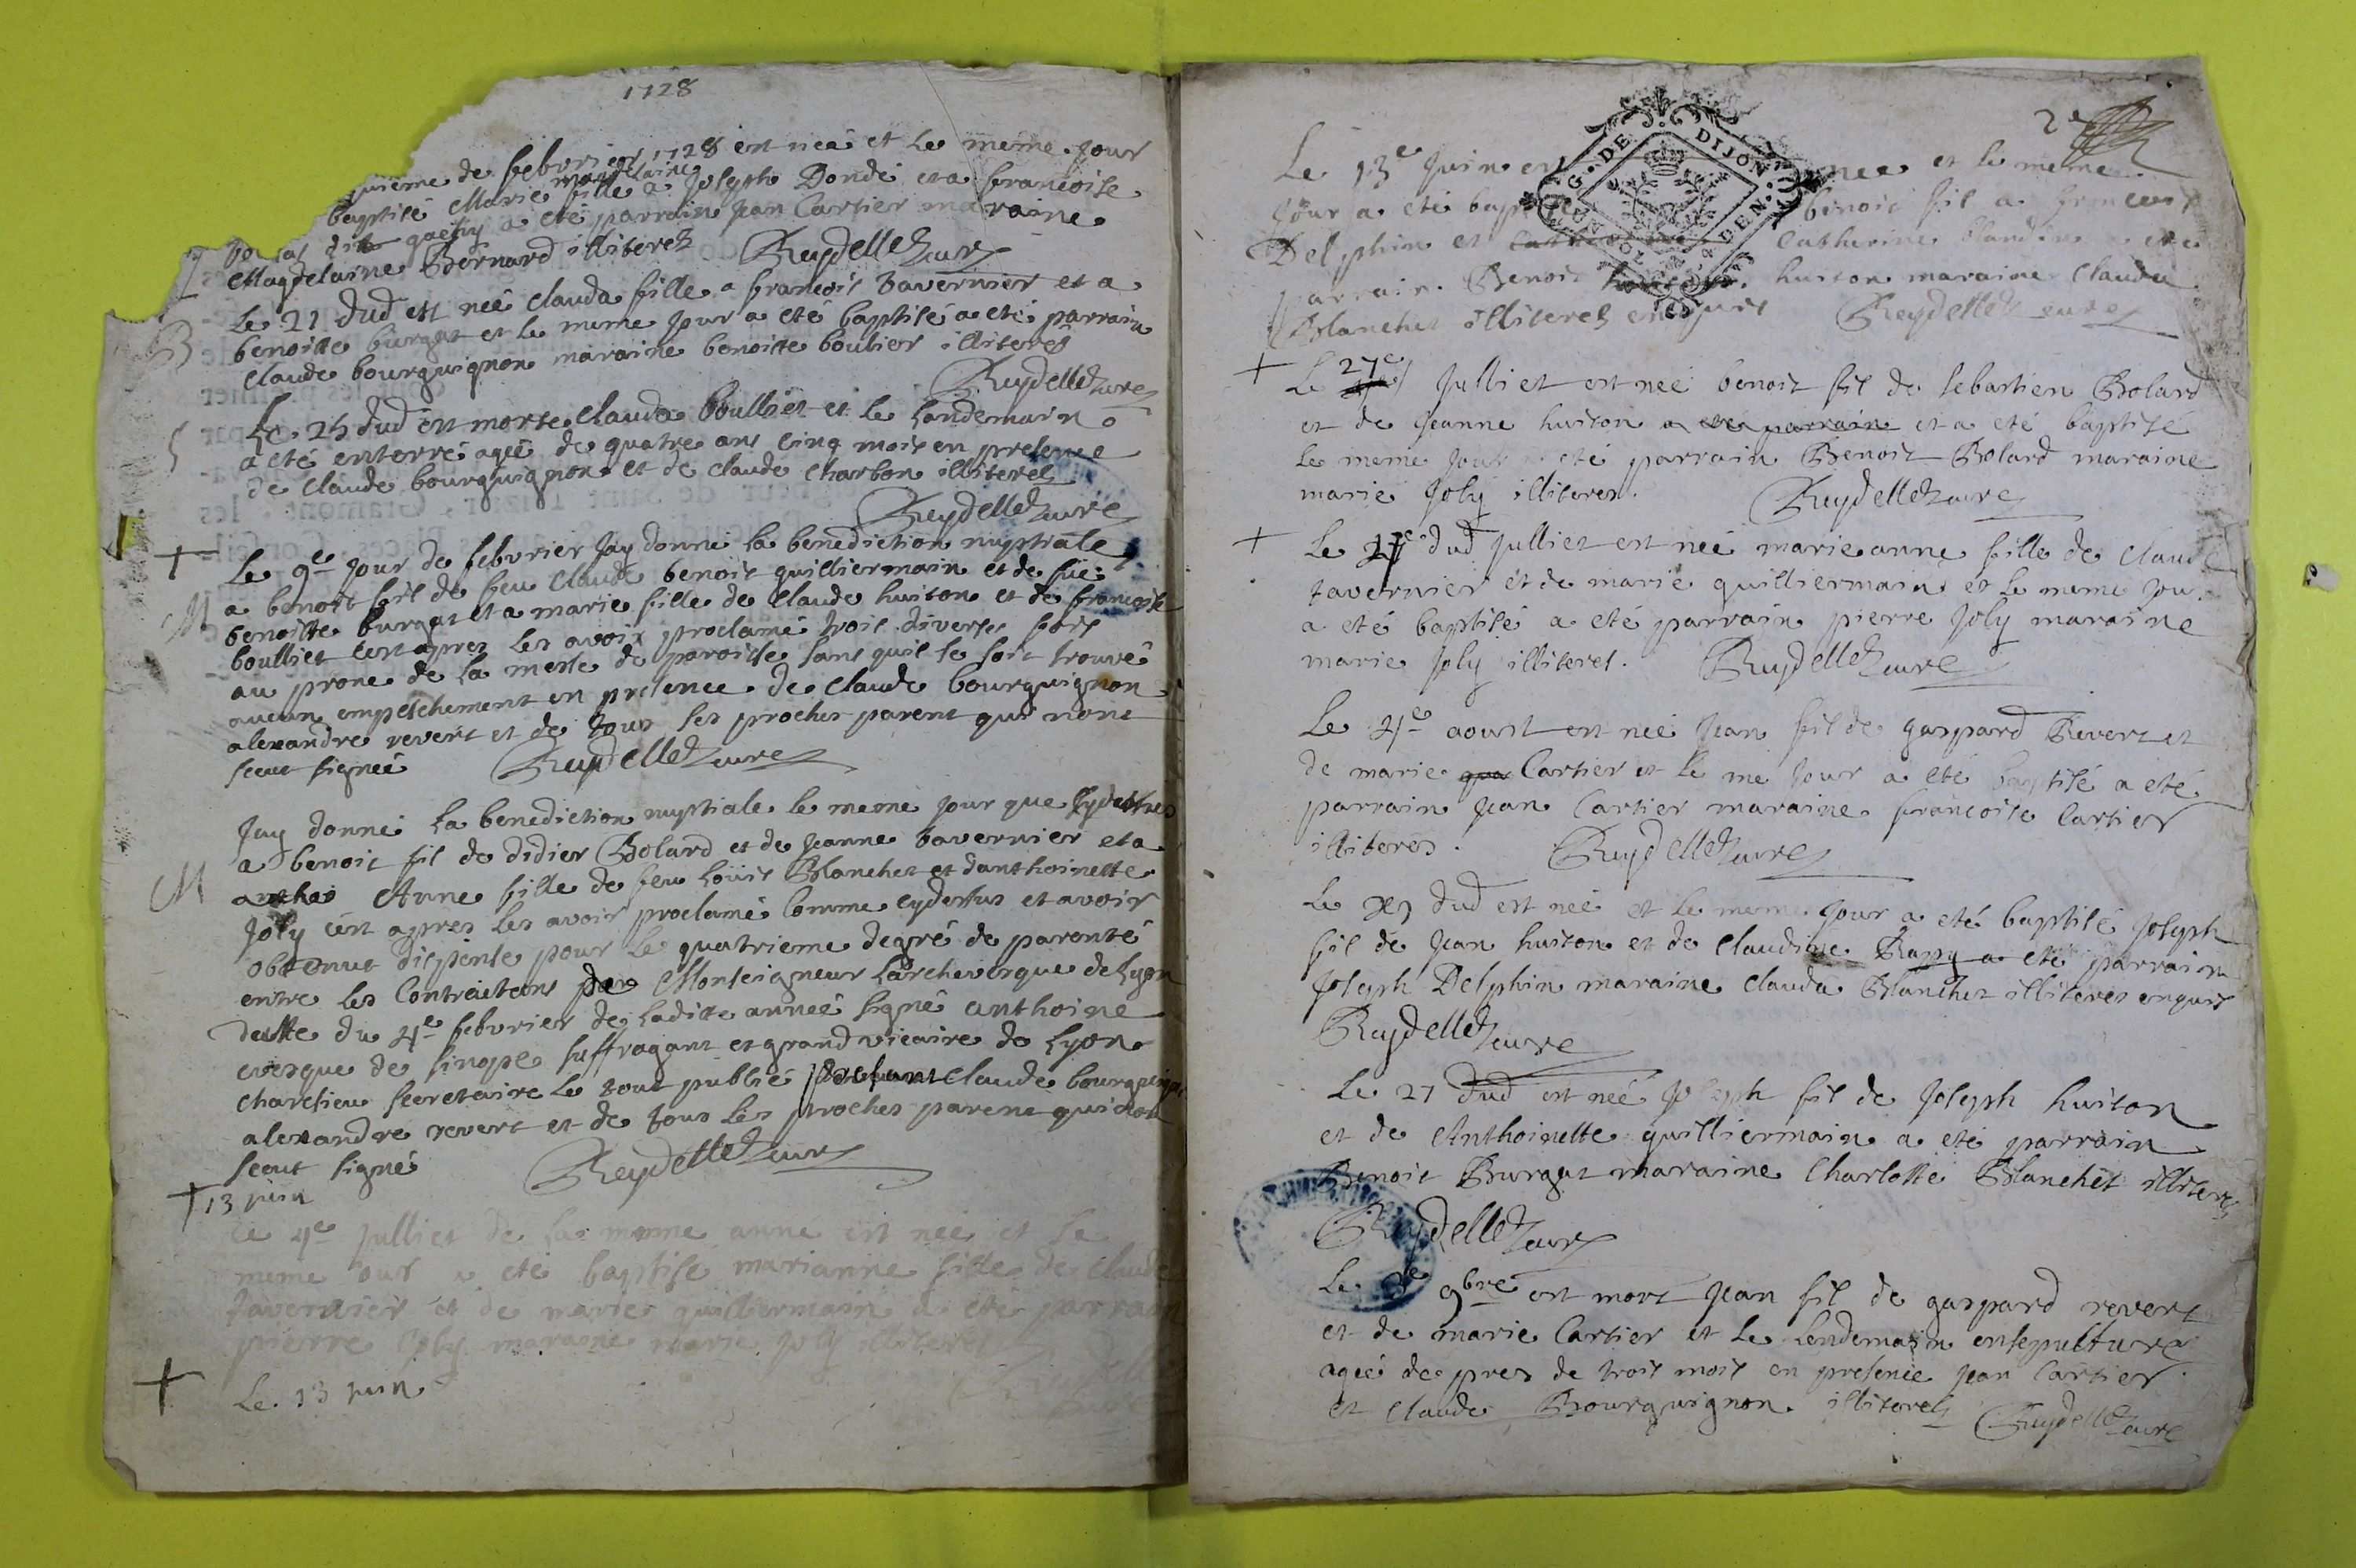 1728
de febvrier 1728 est neé et le meme jour
magdelaine
baptisé Marie fille a Joseph Donde et a francoise
a eté parrain jean Cartier maraine
Magdelaine Bernard illiterez Reydellet curé
B
Le 21 dud est neé Clauda fille a francois Tavernier et a
benoitte burgat et le meme jour a eté baptisé a eté parrain
Claude bourguignon maraine benoitte boulier illiteres
Reydellet curé
S
Le 25 dud est morte Clauda Boulliet et le landemain
a eté enterré ageé de quatre ans cinq mois en presence
de Claude bourguignon et de Claude Charbon illiterez
Reydellet curé
M
Le 9e jour de febvrier Jay donné la benediction nuptiale
a benoit fil de feu Claude benoit quilliermain et de fue
benoitte burgat et a marie fille de Claude huiton et de francoise
boulliet cest apres les avoir proclamé trois diverses fois
au prone de la messe de paroisse sans quil se soit trouvé
aucun empeschement en presence de Claude bourguignon
alexandre revert et de tous les proches parent qui nont
sceut signeé Reydellet curé
M
Jay donné la benediction nuptiale le meme jour que
a benoit fil de didier Bolard et de Jeanne tavernier et a
Anne fille de feu Louis Blanchet et danthoinette
Joly cest apres les avoir proclamé Comme cydessus et avoir
obtenut dispense pour le quatrieme degré de parenté
entre les Contractans par Monseigneur Larchevesque de Lyon
datte du 4e febvrier de ladite anneé signé anthoine
evesque de sinope suffragant et grand vicaire de Lyon
charesieu secretaire le tout publié presant Claude bourguignon
alexandre revert et de tous les proches parent qui nont
sceut signé Reydellet curé
13 juin
Le 4e julliet de la meme anne est neé et le
meme jour a eté baptise marianne fille de Claude
tavernier et de marie quilliermain a eté parrain
pierre Joly maraine marie Joly illiteres
Le 13 juin
2e
G. DE DIJON
Le 13e Juin est neé et le meme
jour a eté baptisé benoit fil a francois
Delphin et Catherine Blandin a eté
parrain Benoit huiton maraine Clauda
Blanchet illiterez enquis Reydellet curé
27e
Le Julliet est neé benoit fil de sebastien Bolard
et de Jeanne huiton a eté parrain et a eté baptisé
le meme jour a eté parrain Benoit Bolard maraine
marie Joly illiteres. Reydellet curé
Le dud Julliet est neé marie anne fille de Claude
tavernier et de marie quilliermain et le meme jou
a eté baptisé a eté parrain pierre Joly maraine
marie Joly illiteres. Reydellet curé
Le 4e aoust est neé Jean fil de gaspard Revert et
de marie Cartier et le me jour a eté baptisé a eté
parrain Jean Cartier maraine francoise Cartier
illiteres. Reydellet curé
Le dud est neé et le meme jour a eté baptisé Joseph
fil de Jean huiton et de Claudine Rapy a eté parrain
Joseph Delphin maraine Clauda Blanchet illiteres enquis
Reydellet curé
Le 21 dud est neé Joseph fil de Joseph huiton
et de Anthoinette quilliermain a eté parrain
Benoit Burgat maraine Charlotte Blanchet illiterez
Reydellet curé
Le 9bre est mort Jean fil de gaspard revert
et de marie Cartier et le Lendemain ensepulturé
ageé de pres de trois mois en presence Jean Cartier
et Claude Bourguignon illiterez Reydellet curé